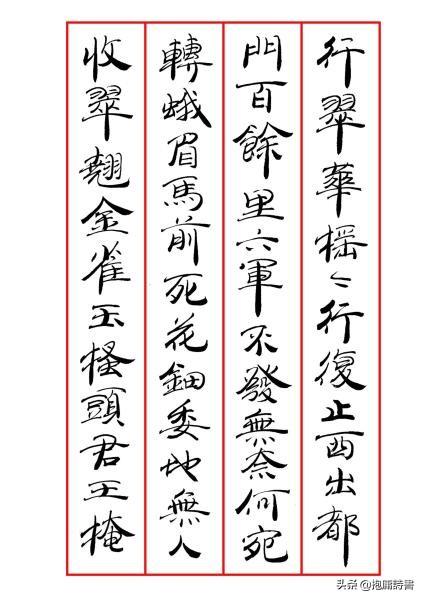 行翠華榣〻行復止西出都
門百餘里六軍不發無奈何宛
轉蛾眉馬前死花鈿委地無人
收翠翹金雀玉搔頭君王掩
头条 @抱庸詩書